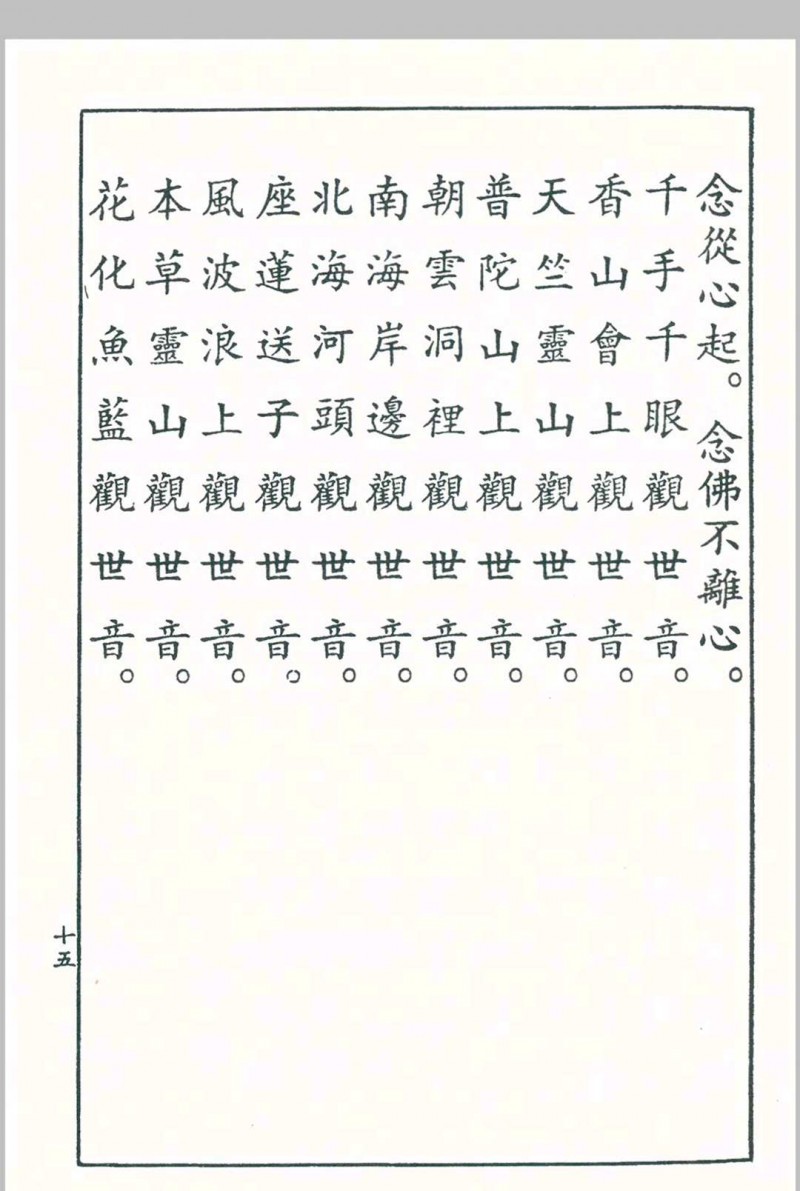 念從心起。念佛不離心。
千手千眼觀世音。
香山會上觀世音。
天竺靈山觀世音。
普陀山上觀世音。
朝雲洞裡觀世音。
南海岸邊觀世音。
北海河頭觀世音。
座蓮送子觀世音。
風波浪上觀世音。
本草靈山觀世音。
花化魚藍觀世音。
十五